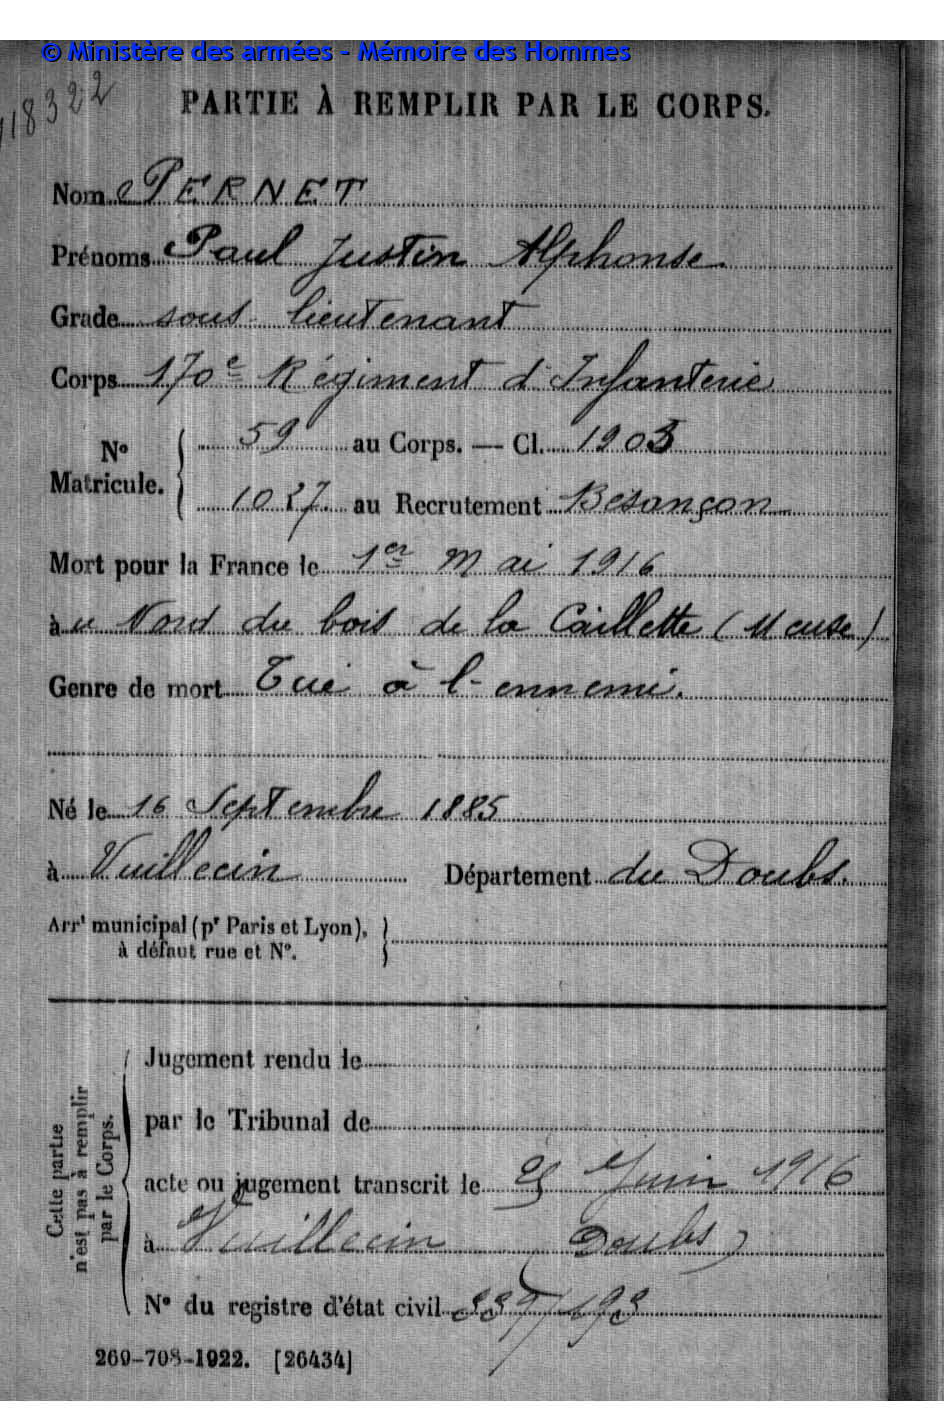 © Ministère des armées - Mémoire des Hommes
18322
PARTIE À REMPLIR PAR LE CORPS.
Nom PERNET
Prénoms Paul Justin Alphonse
Grade sous-lieutenant
Corps 170e Régiment d'Infanterie
No Matricule. { 59 au Corps. — Cl. 1905
1027 au Recrutement Besançon
Mort pour la France le 1er Mai 1916
àu Nord du bois de la Caillette (Meuse)
Genre de mort Tué à l'ennemi.
Né le 16 Septembre 1885
à Vuillecin Département du Doubs.
Arrt municipal (pr Paris et Lyon), }
à défaut rue et No.
Cette partie n'est pas à remplir par le Corps.
Jugement rendu le
par le Tribunal de
acte ou jugement transcrit le 25 Juin 1916
à Vuillecin (Doubs)
No du registre d'état civil
269-708-1922. [26434]